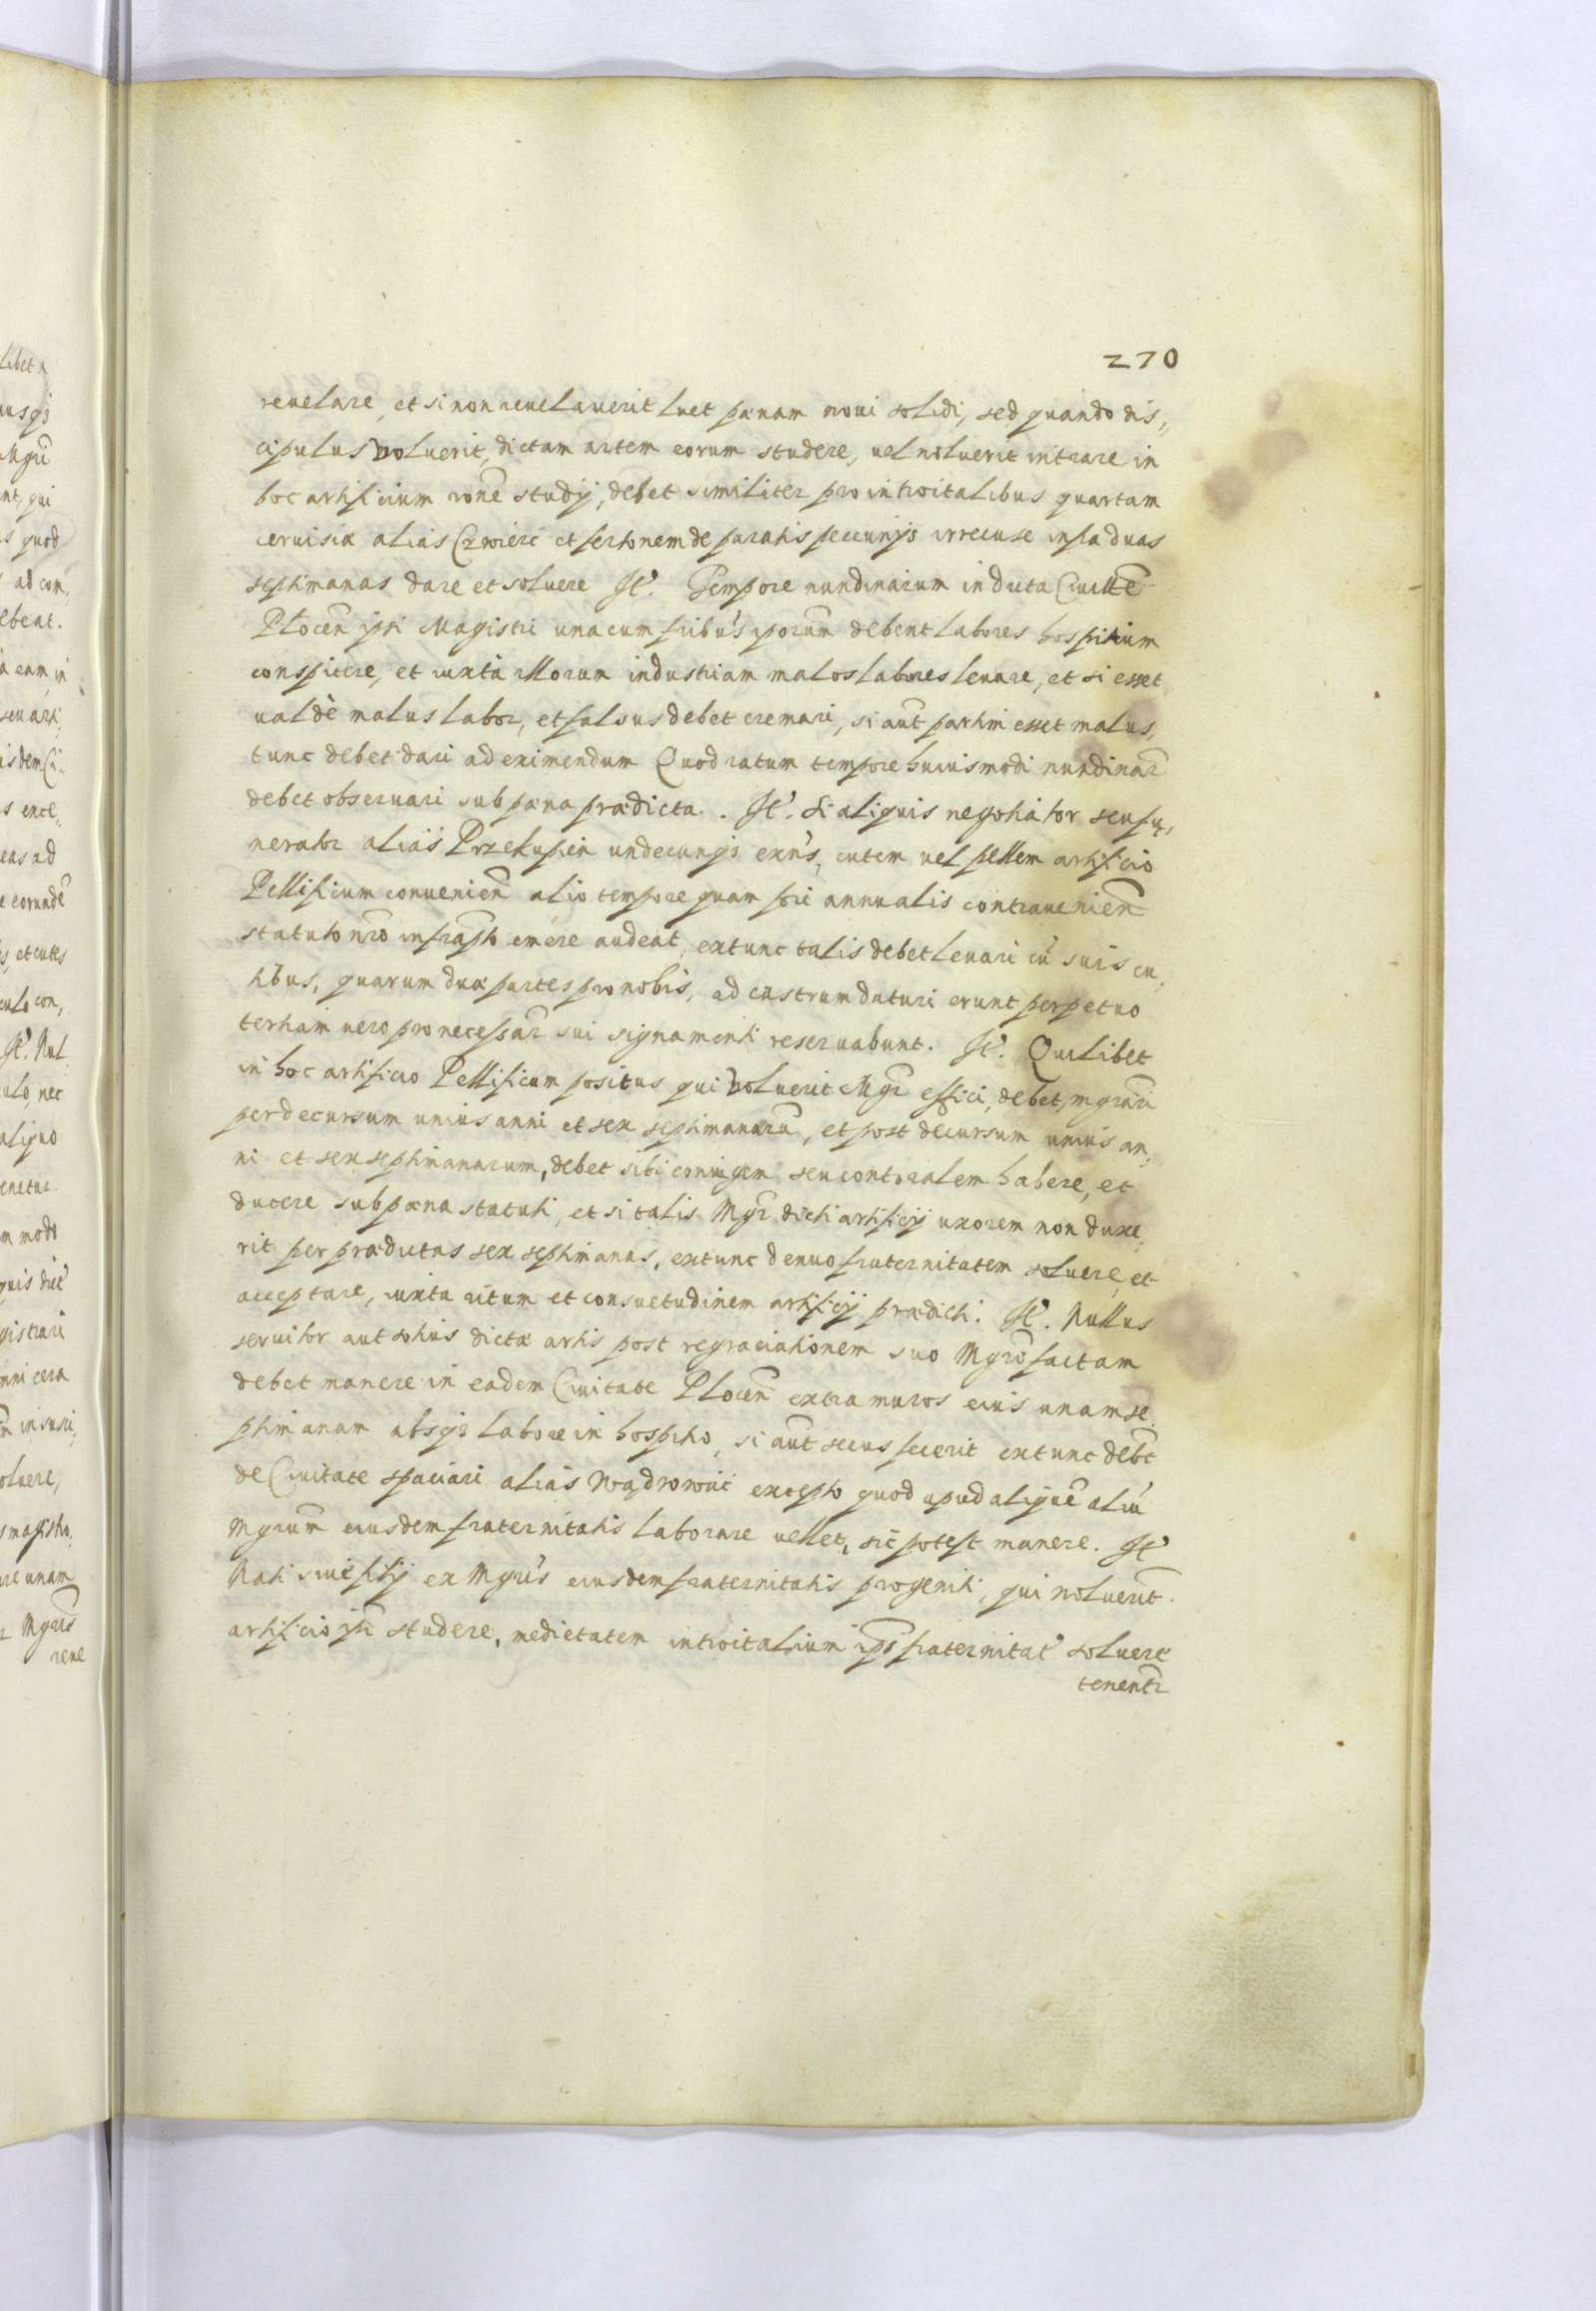 270
reuelare, et si non reuelauerit luet pœnam noui solidi, sed quando dis,,
cipulus voluerit, dictam artem eorum studere, uel noluerit intrare in
hoc artificium rone studij, debet similiter pro introitalibus quartam
ceruisiæ alias Czwierc et fertonem de paratis pecunijs irrecuse infra duas
septimanas dare et soluere It. Tempore nundinarum in dicta Ciuitte
Plocen ipsi Magistri una cum fribus ipsorum debent labores hospitium
conspicere, et iuxta illorum industriam malos labores leuare, et si esset
ualdè malus labor, et falsus debet cremari, si aut partim esset malus,
tunc debet dari ad eximendum Quod ratum tempore huiusmodi nundinar
debet obseruari sub pœna prædicta. It. Si aliquis negotiator seu fę,
nerator aliàs Przekupien undecunqz exns, cutem uel pellem artificio
Pellificum conuenien alio tempore quam fori annualis contrauenien
statuto nro infrapto emere audeat, extunc talis debet leuari cu suis cu,
tibus, quarum duæ partes pro nobis, ad castrum daturi erunt perpetuo
tertiam uero pro necessar sui signamenti reseruabunt. It. Quilibet
in hoc artificio Pellificum positus qui voluerit Mgr effici, debet, mgrari
per decursum unius anni et sex septimanaru, et post decursum unius an,
ni et sex septimanarum, debet sibi coniugem seu contoralem habere, et
ducere sub pœna statuti, et si talis Mgr dicti artificij uxorem non duxe,
rit per prædictas sex septimanas, extunc denuo fraternitatem soluere, et
acceptare, iuxta ritum et consuetudinem artificij prædicti. It. Nullus
seruitor aut sotius dictæ artis post regraciationem suo Mgro factam
debet manere in eadem Ciuitate Plocen extra muros eius unam se,
ptimanam absqz labore in hospitio, si aut secus fecerit extunc debt
de Ciuitate spaciari aliàs Wądrowac excepto quod apud alique aliu
Mgrum eiusdem fraternitatis laborare uellet, sic potest manere. It
Nati siue filij ex Mgris eiusdem fraternitatis progeniti, qui noluerit
artificio isti studere, medietatem introitalium ips fraternitat soluere
tenentr